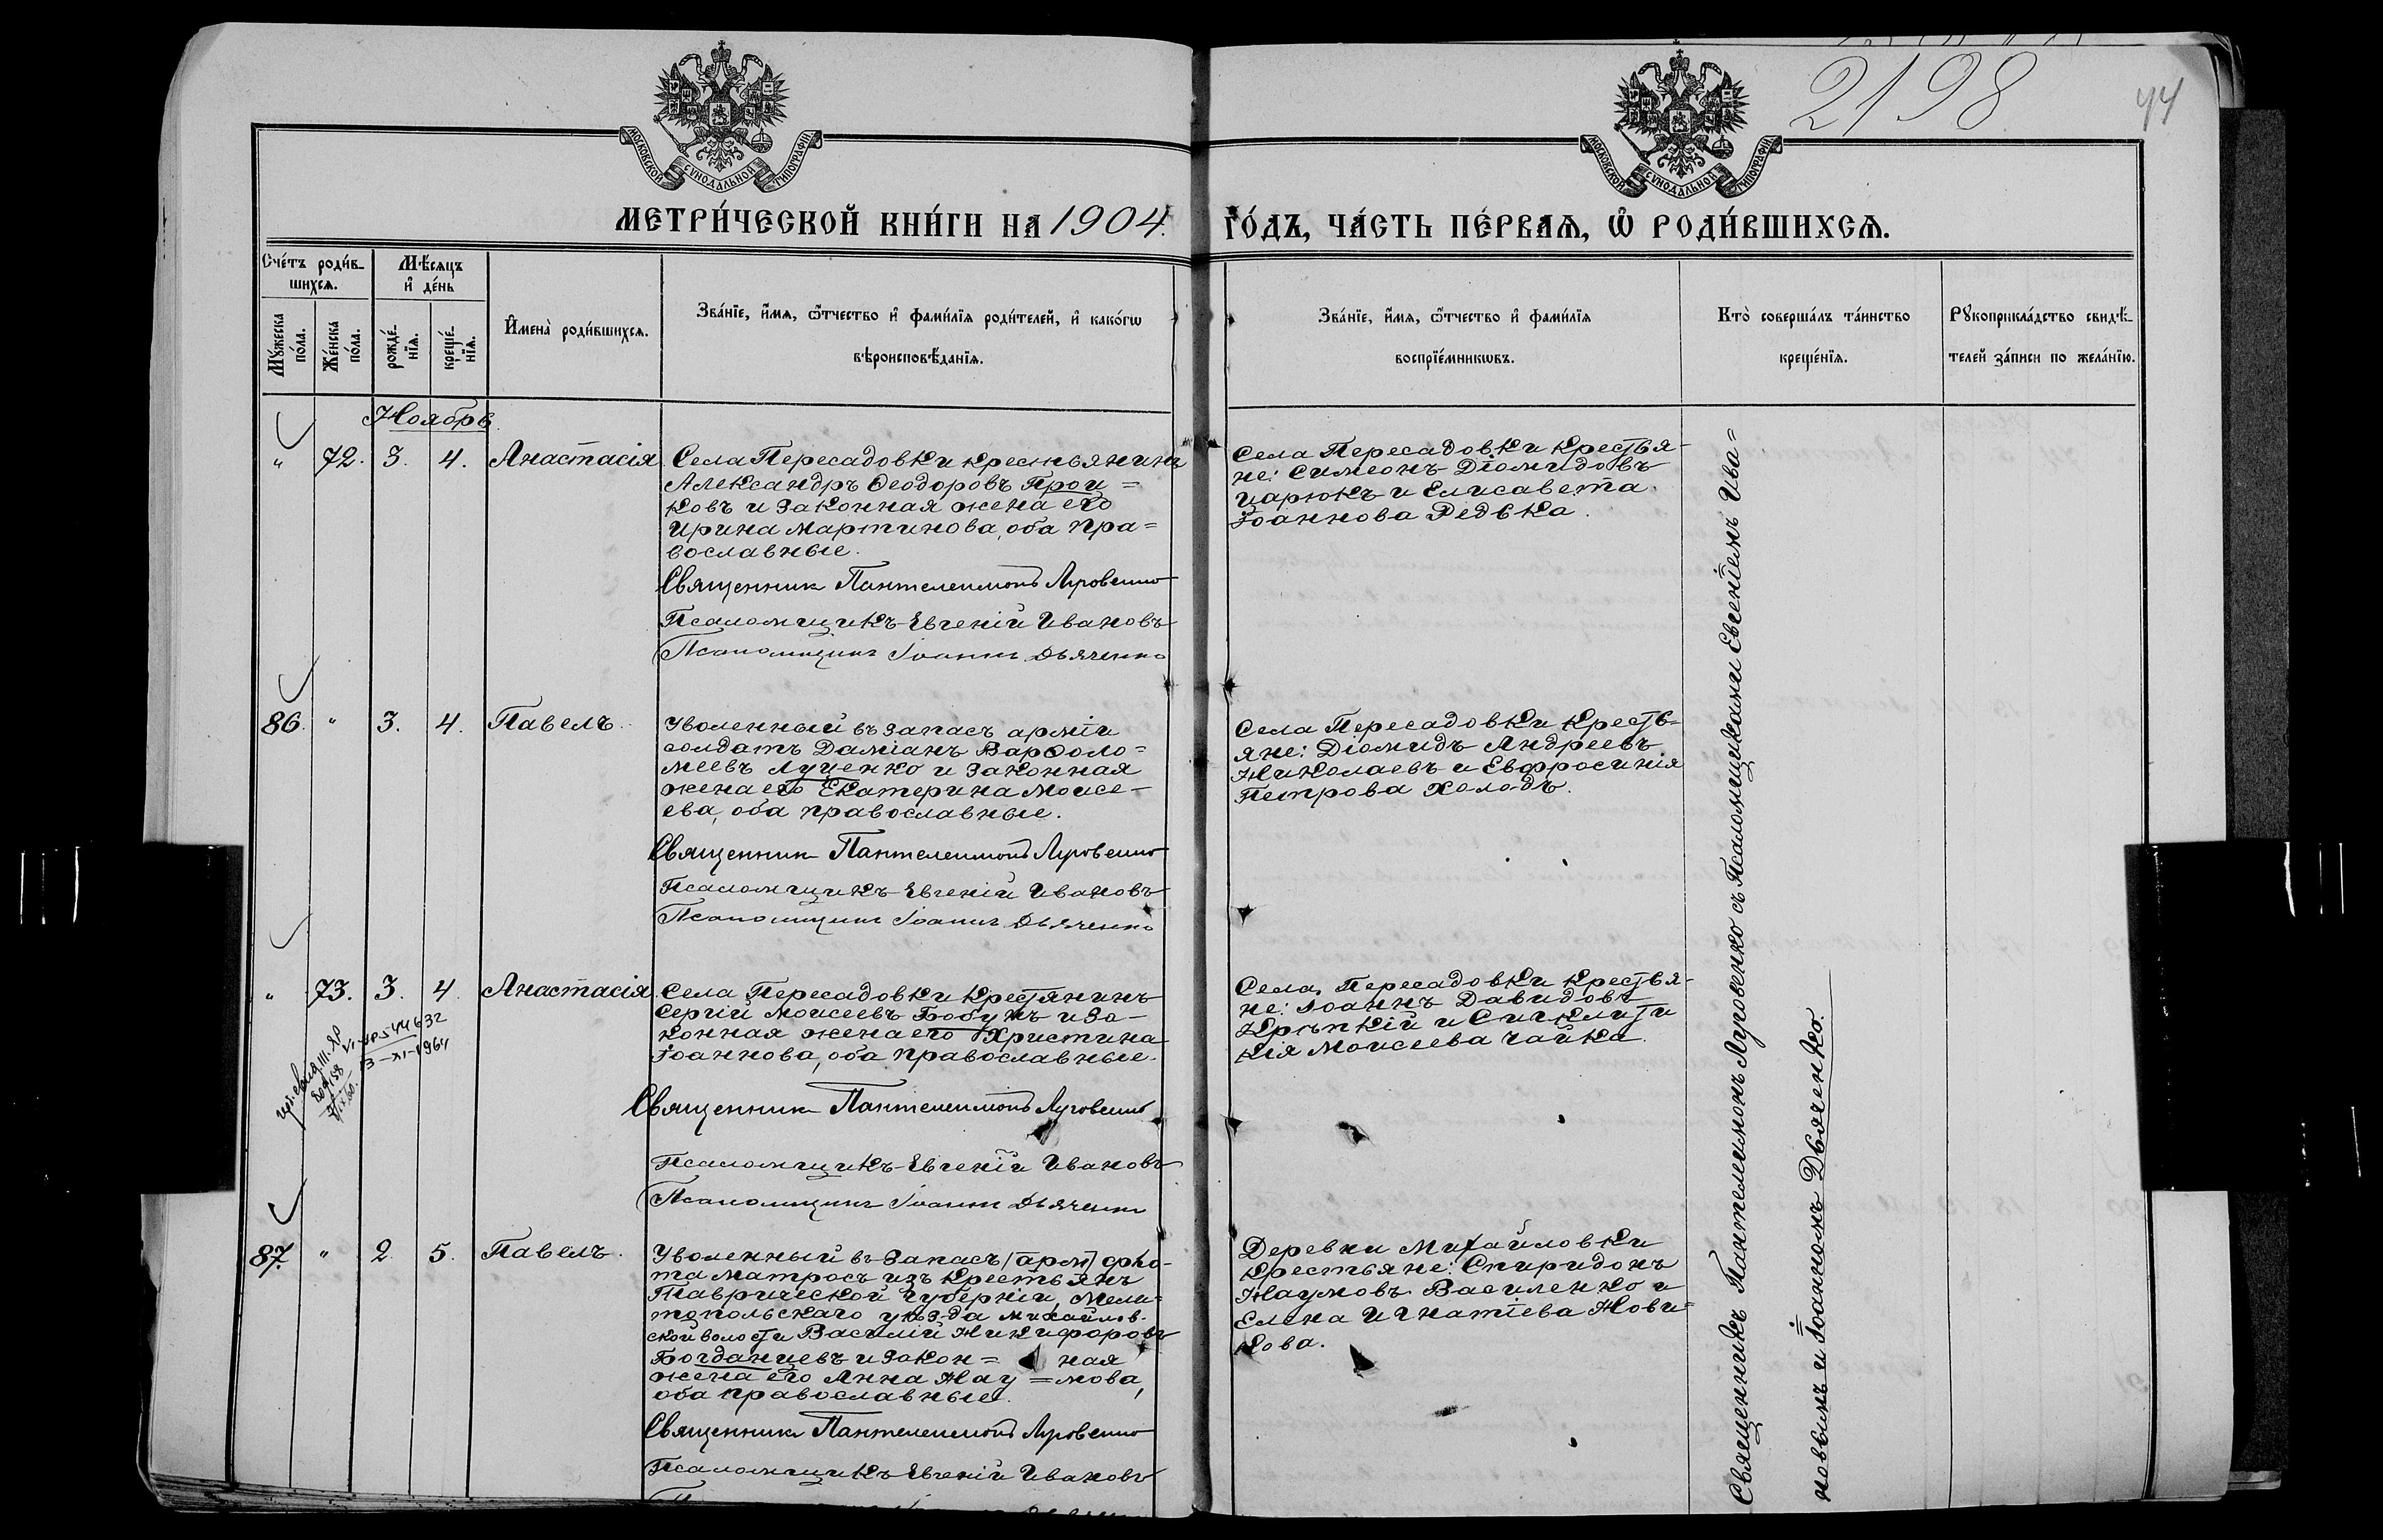 2198
44
МОСКОВСКОЙ СѴНОДАЛЬНОЙ ТИПОГРАФІИ
МОСКОВСКОЙ СѴНОДАЛЬНОЙ ТИПОГРАФІИ
МЕТРИ́ЧЕСКОЙ КНИ́ГИ НА 1904. ГО́ДЪ, ЧА́СТЬ ПЕ́РВАѦ, Ѡ҆ РОДИ́ВШИХСѦ.
Сче́тъ роди́в-
шихсѧ.
Мꙋ́жеска по́ла.
Же́нска по́ла.
Мѣ́сяцъ
и҆ де́нь
рожде́-
нїѧ.
креще́-
нїѧ.
И҆мена̀ роди́вшихсѧ.
Зва́нїе, и҆́мѧ, ѻ҆́тчество и҆ фами́лїѧ роди́телей, и҆ како́гѡ
вѣроисповѣ́данїѧ.
Зва́нїе, и҆́мѧ, ѻ҆́тчество и҆ фами́лїѧ
воспрїе́мникѡвъ.
Кто̀ соверша́лъ та́инство
креще́нїѧ.
Рꙋкоприкла́дство свидѣ́-
телей за́писи по жела́нїю.
Ноябрь.
" 72. 3. 4. Анастасія.
Села Пересадовки крестьянинъ
Александръ Ѳеодоровъ Прои=
ковъ и законная жена его
Ирина Мартинова, оба пра=
вославные.
Священник Пантелеимонъ Луговенко
Псаломщикъ Евгеній Ивановъ
Псаломщикъ Іоаннъ Дьяченко
Села Пересадовки крестья-
не: Симеонъ Діомидовъ
Царюкъ и Елисавета
Іоаннова Редька.
86. " 3. 4. Павелъ.
Уволенный въ запасъ арміи
солдатъ Даміанъ Варѳоло=
меевъ Луценко и законная
жена его Екатерина Моисе-
ева, оба православные.
Священник Пантелеимонъ Луговенко
Псаломщикъ Евгеній Ивановъ
Псаломщикъ Іоаннъ Дьяченко
Села Пересадовки кресть-
яне: Діомидъ Андреевъ
Николаевъ и Евфросинія
Петрова Холодъ.
" 73. 3. 4. Анастасія.
Села Пересадовки крестянинъ
Сергій Моисеевъ Бобужъ и за-
конная жена его Христина
Іоаннова, оба православные.
Священник Пантелеимонъ Луговенко
Псаломщикъ Евгеній Ивановъ
Псаломщикъ Іоаннъ Дьяченко
Села Пересадовки крестья-
не: Іоаннъ Давидовъ
Крѣпкій и Сигклити
кія Моисеева Чайка.
544632
3-XI-1964
87. " 2. 5. Павелъ.
Уволенный въ запасъ (арм) фло-
та матросъ изъ крестьянъ
Таврической губерніи, Мели-
топольскаго уѣзда Михайлов-
ской волости Василій Никифоровъ
Богданцевъ и закон= ная
жена его Анна Нау=мова,
оба православные.
Священник Пантелеимонъ Луговенко
Псаломщикъ Евгеній Ивановъ
Деревни Михайловки
крестьяне: Спиридонъ
Наумовъ Василенко и
Елена Игнатіева Нови=
кова.
Священникъ Пантелеимонъ Луговенко съ Псаломщиками Евгеніемъ Ива=
новымъ и Іоанномъ Дьяченко.